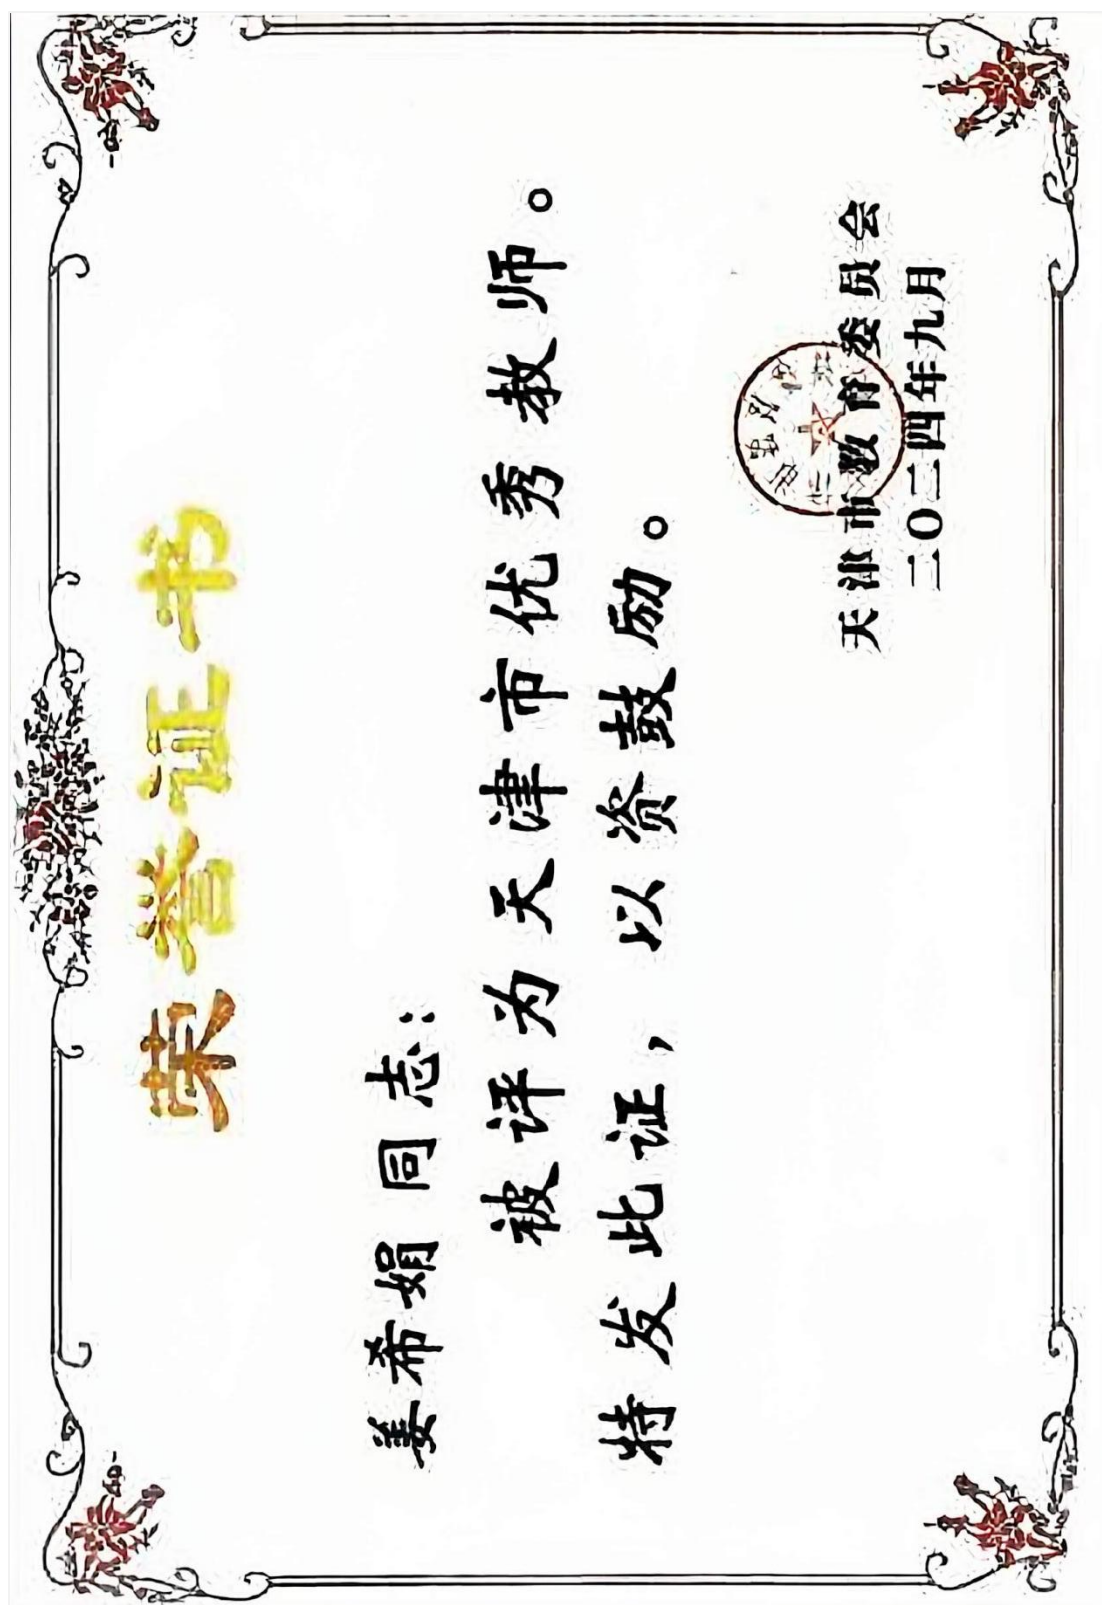 荣誉证书
姜希娟同志：
被评为天津市优秀教师。
特发此证，以资鼓励。
天津市教育委员会
二〇二四年九月